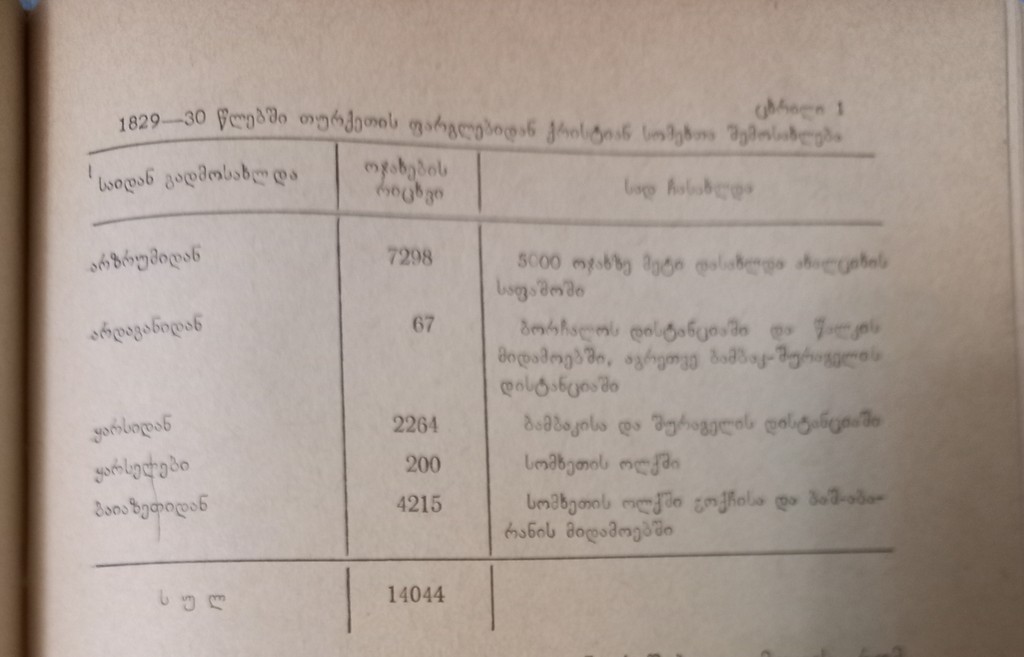 ცხრილი 1
1829—30 წლებში თურქეთის ფარგლებიდან ქრისტიან სომეხთა შემოსახლება
საიდან გადმოსახლდა
ოჯახების
რიცხვი
სად ჩასახლდა
არზრუმიდან 7298 5000 ოჯახზე მეტი დასახლდა ახალციხის
საფაშოში
არდაგანიდან 67 ბორჩალოს დისტანციაში და წალკის
მიდამოებში, აგრეთვე ბამბაკ-შურაგელის
დისტანციაში
ყარსიდან 2264 ბამბაკისა და შურაგელის დისტანციაში
ყარსელები 200 სომხეთის ოლქში
ბაიაზეთიდან 4215 სომხეთის ოლქში გოქჩისა და ბაშ-აბა-
რანის მიდამოებში
სულ 14044